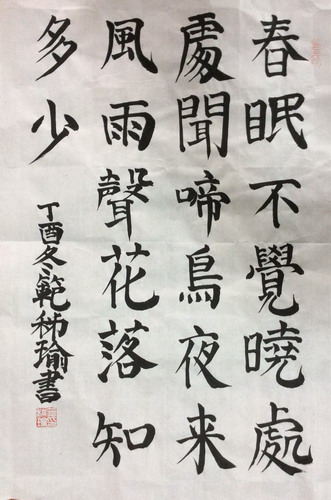 春眠不覺曉處
處聞啼鳥夜来
風雨聲花落知
多少
丁酉冬範秭瑜書